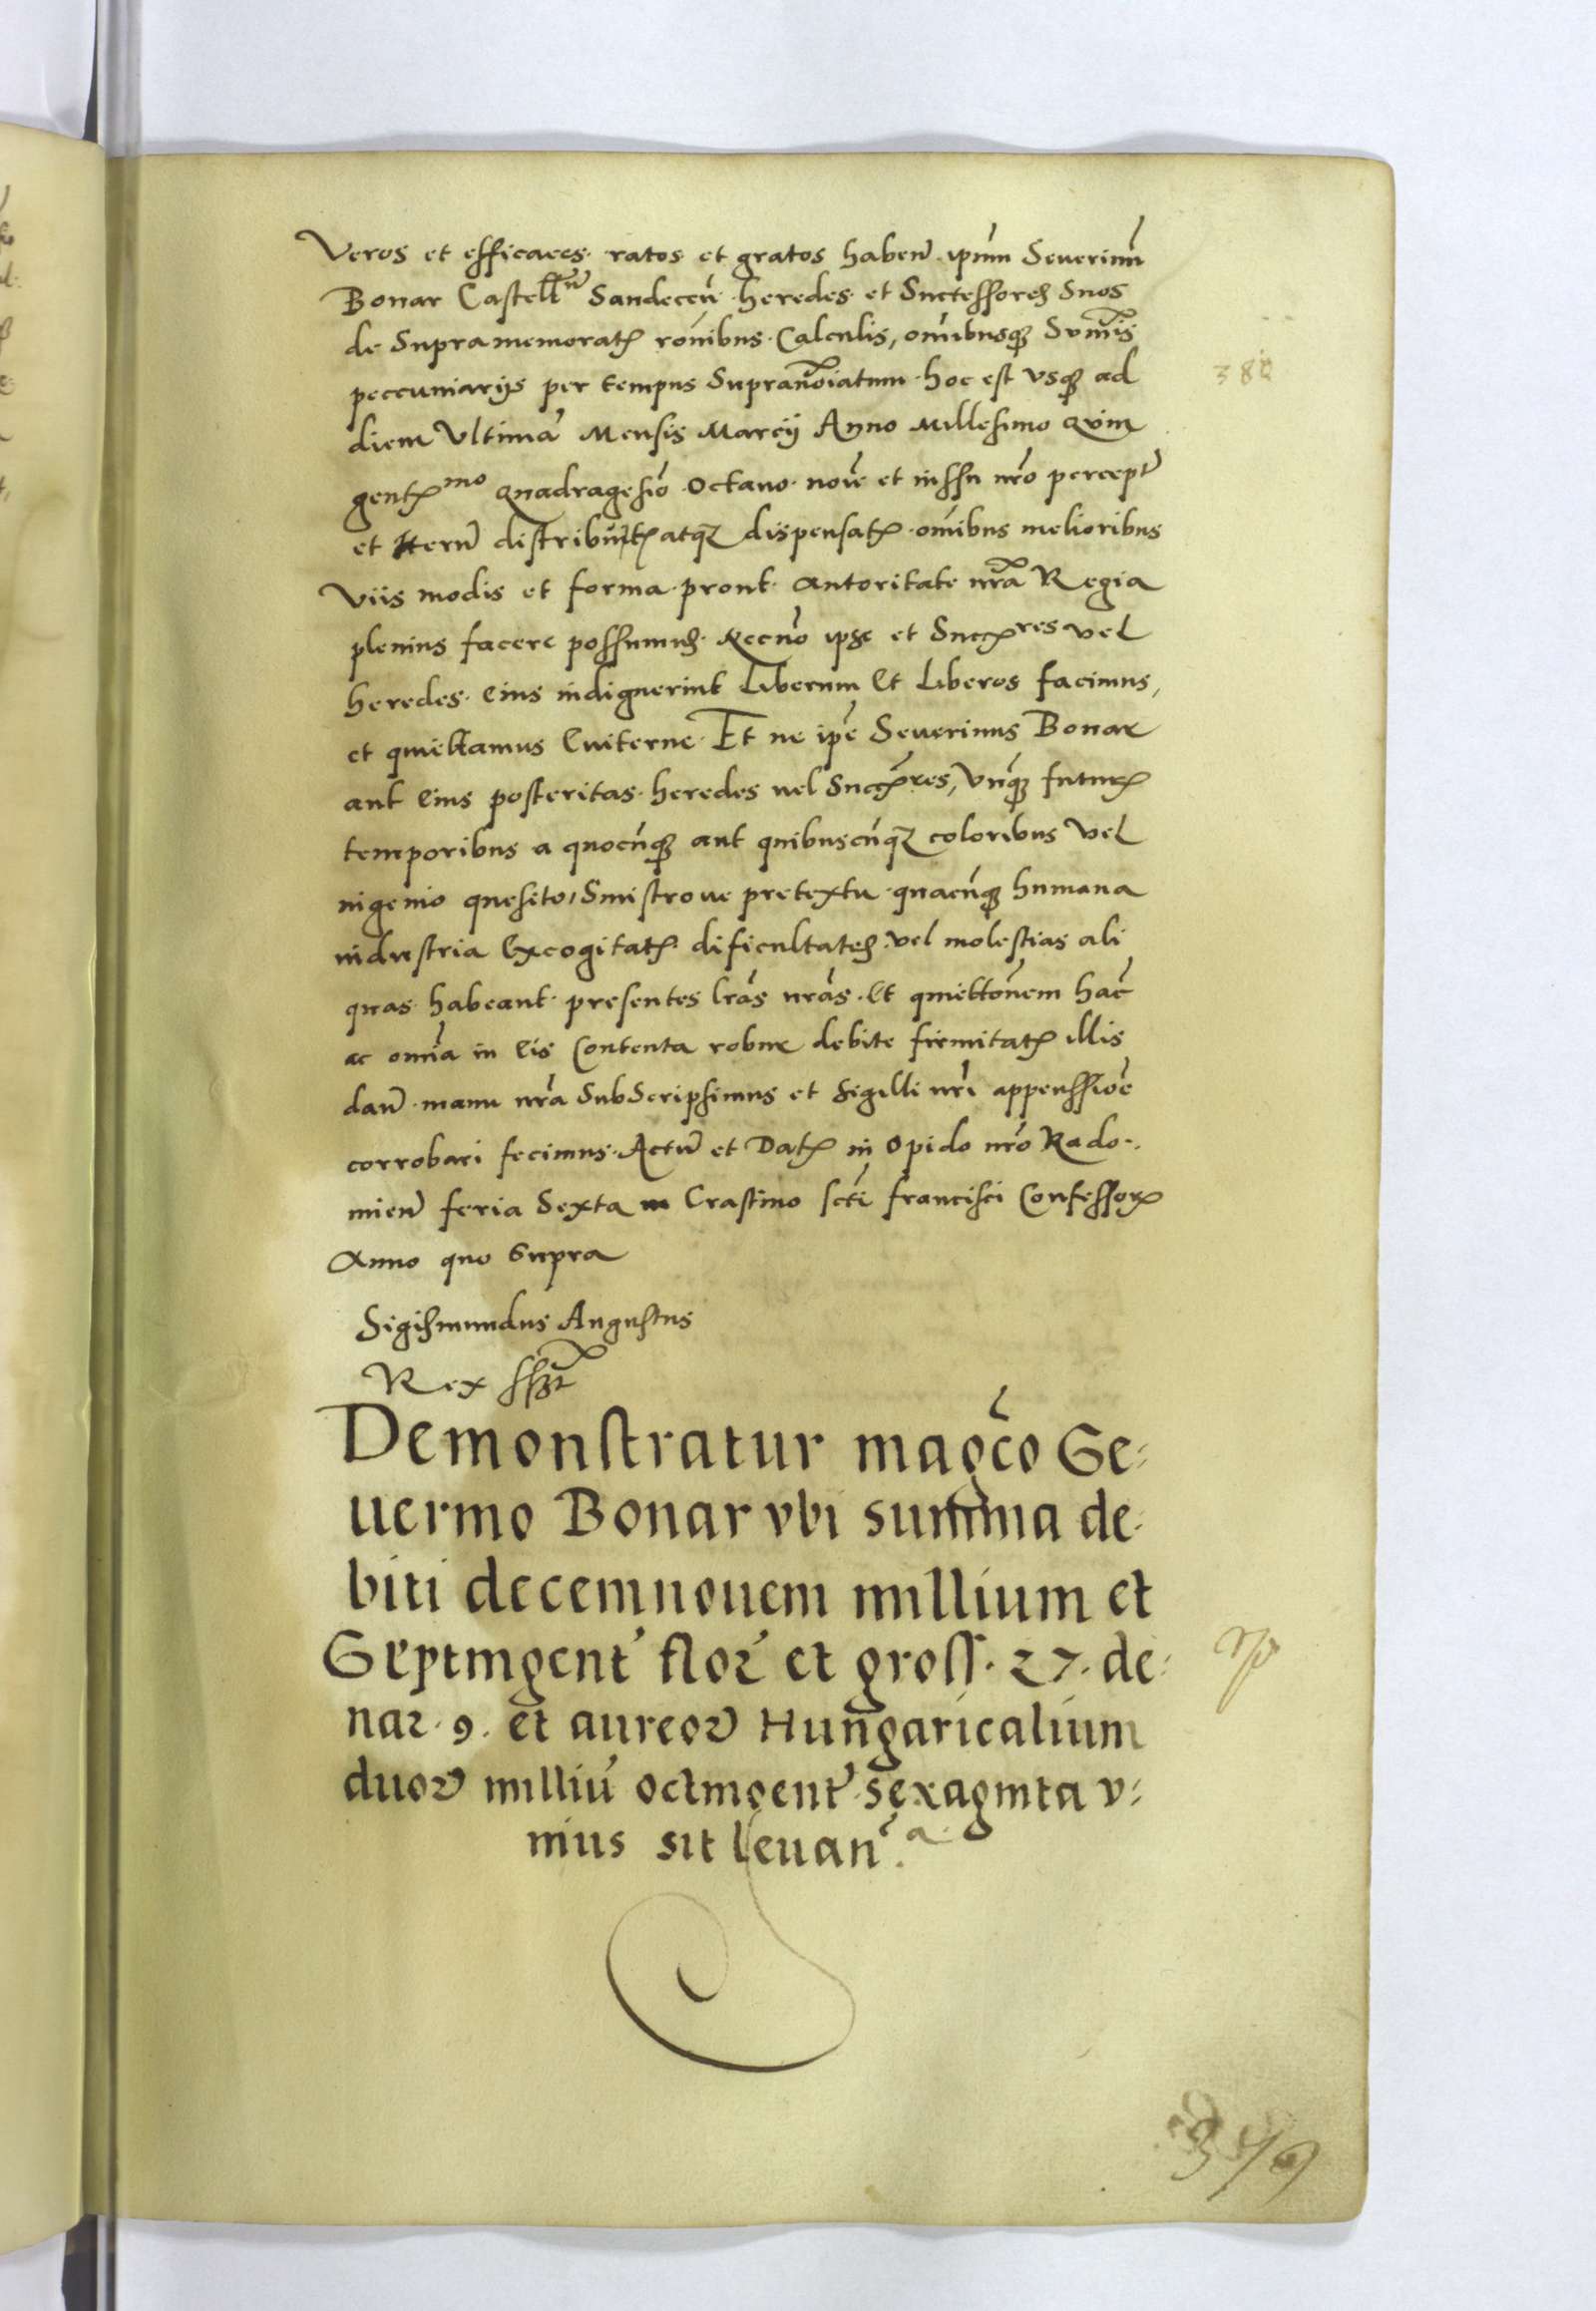 Veros et efficaces ratos et gratos haben̄ ipm̄m Seuerinū
Bonar Castellū Sandeceū heredes et Successores Suos
de Supramemoratꝭ rōnibus Calculis, om̄ibusqꝫ Sum̄is
peccuniarijs per tempus Supranōiatum hoc est vsqꝫ ad
380
diem Vltimā Mensis Marcij Anno Millesimo Quin
gentꝭmo Quadragesiō Octauo noīe et iussu nr̄o percept̄
et Iterū distributꝭ atqꝫ dispensatꝭ om̄ibus melioribus
Viis modis et forma prout autoritate nr̄a Regia
plenius facere possumus ipse et Succꝭres vel
heredes Eius indiguerint Liberum Et Liberos facimus,
et quiettamus Euiterne Et ne ip̄e Seuerinus Bonar
aut Eius posteritas heredes uel Succꝭres, Vnq̄ꝫ futurꝭ
temporibus a quocūqꝫ aut quibuscūqꝫ coloribus Vel
ingenio quesito, Sinistroue pretextu quacūqꝫ humana
industria Excogitatꝭ dificultates vel molestias ali
quas habeant presentes lr̄as nr̄as Et quiettōnem hāc
ac om̄ia in Eis Contenta robur debite firmitatꝭ illis
dan̄ manu nr̄a SubScripsimus et Sigilli nr̄i appenssiōe
corrobari fecimus Actū et Datꝭ in Opido nr̄o Rado-
mien̄ feria Sexta in Crastino sct̄i francisci Confessorꝭ
Anno quo Supra
Sigismundus Augustus
Rex sszt
Demonstratur maḡco Se-
uerino Bonar vbi summa de-
biti decemnouem millium et
Septingent̄ flor̄ et gross. 27. de-
nar. 9. et aureorꝫ Hungaricalium
duorꝫ milliū octingent̄ sexaginta v-
nius sit leuan̄.a
349